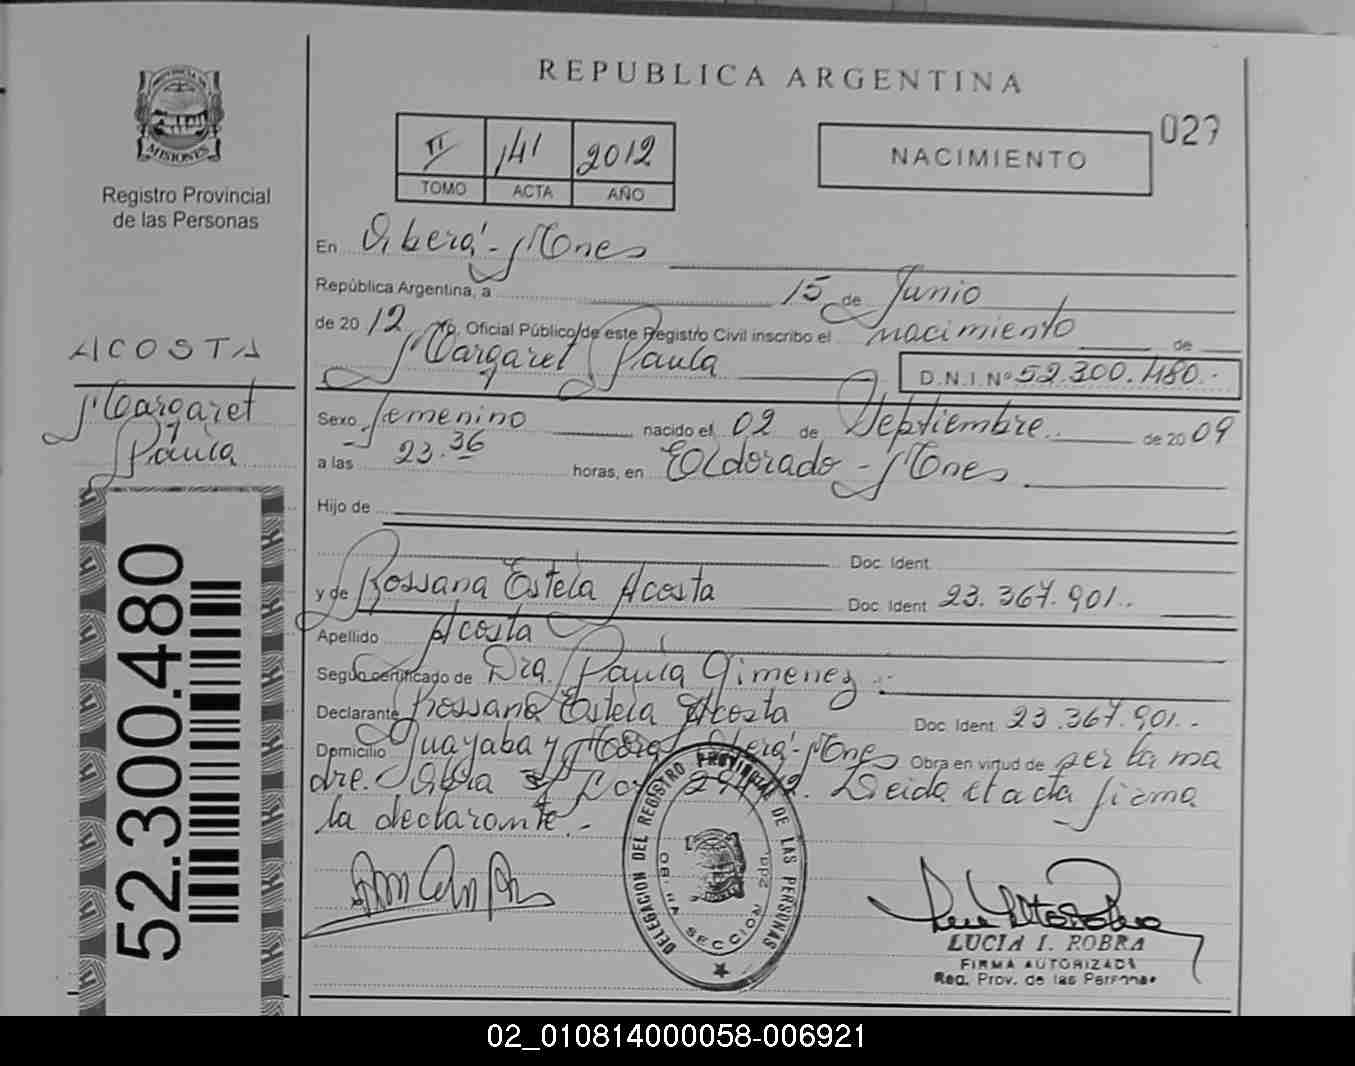 REPUBLICA ARGENTINA
PROVINCIA DE
MISIONES
Registro Provincial
de las Personas
II 141 2012
TOMO ACTA AÑO
NACIMIENTO
027
En Oberá - Mones
República Argentina, a 15 de Junio
de 2012 Yo, Oficial Público de este Registro Civil inscribo el nacimiento de
Margaret Paula D.N.I. Nº 52.300.480.-
Sexo femenino nacido el 02 de Septiembre de 2009
a las 23.36 horas, en Eldorado - Mones
Hijo de
Doc. Ident.
y de Rossana Estela Acosta Doc. Ident. 23.367.901.-
Apellido Acosta
Según certificado de Dra. Paula Gimenez.-
Declarante Rossana Estela Acosta Doc. Ident. 23.367.901.-
Domicilio Guayaba y Oberá - Mones Obra en virtud de ser la ma
dre. Leida el acta firma
la declarante.-
ACOSTA
Margaret
Paula
52.300.480
DELEGACION DEL REGISTRO PROVINCIAL DE LAS PERSONAS
SECCION
LUCIA I. ROBRA
FIRMA AUTORIZADA
Reg. Prov. de las Personas
02_010814000058-006921